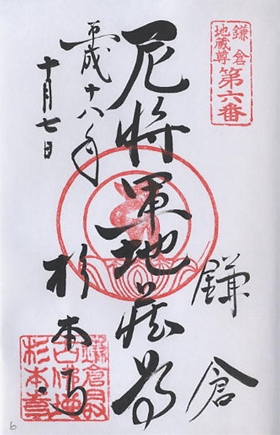 鎌倉
地蔵尊
第六番
尼将軍地蔵尊
鎌倉
杉本寺
平成十八年
十月七日
6